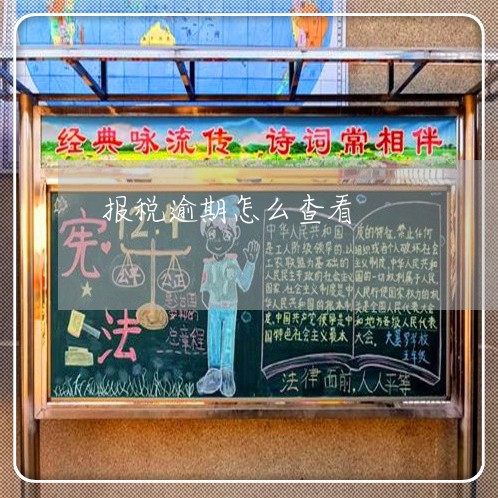 经典咏流传 诗词常相伴
报税逾期怎么查看
宪法
12.4
公平
公正
总章程
中华人民共和国
是工人阶级领导的,以
工农联盟为基础的
人民民主专政的社会主义
国家.社会主义制度是中
华人民共和国的根本制
度.中国共产党领导是中
国特色社会主义最本
质的特征.禁止任何
组织或者个人破坏社会
主义制度.中华人民共和
国的一切权利属于人民.
人民行使国家权力的机
关是全国人民代表大会
和地方各级人民代表
大会.
五年级
法律面前,人人平等